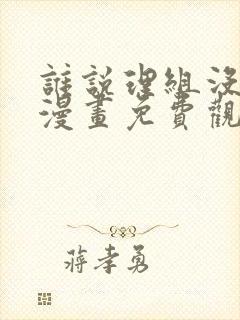 誰說理組沒
漫畫免費觀
蔣孝勇